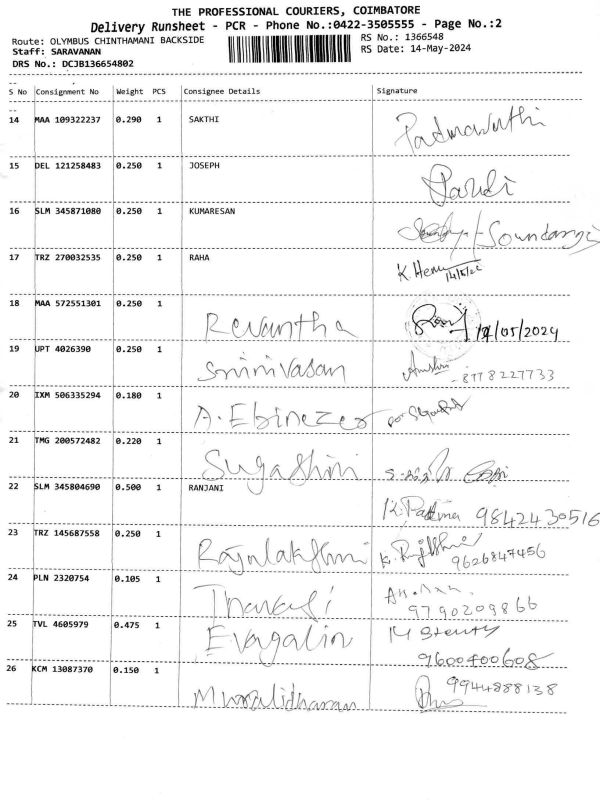 THE PROFESSIONAL COURIERS, COIMBATORE
Delivery Runsheet - PCR - Phone No.:0422-3505555 - Page No.:2
Route: OLYMBUS CHINTHAMANI BACKSIDE RS No.: 1366548
Staff: SARAVANAN RS Date: 14-May-2024
DRS No.: DCJB136654802
S No Consignment No Weight PCS Consignee Details Signature
14 MAA 109322237 0.290 1 SAKTHI Padmavathi
15 DEL 121258483 0.250 1 JOSEPH
16 SLM 345871080 0.250 1 KUMARESAN
17 TRZ 270032535 0.250 1 RAHA K.Hem
18 MAA 572551301 0.250 1 Revantha 14/05/2024
19 UPT 4026390 0.250 1 Srinivasan - 8778227733
20 IXM 506335294 0.180 1 A.Ebinezer
21 TMG 200572482 0.220 1 Sugashini
22 SLM 345804690 0.500 1 RANJANI K.Padma 9842430516
23 TRZ 145687558 0.250 1 Rajalakshmi 9626847456
24 PLN 2320754 0.105 1 9790209866
25 TVL 4605979 0.475 1 Evagalin 9600400608
26 KCM 13087370 0.150 1 Muralidharan 9944888138